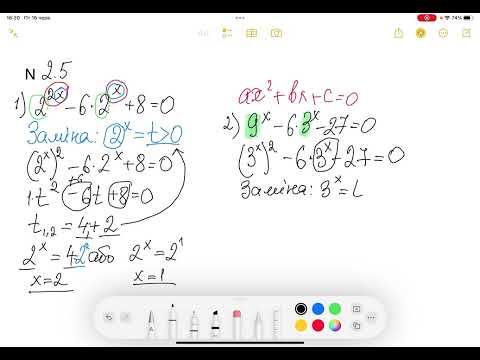 16:20 Пт 16 черв.
74%
N 2.5
1) 2^{2x} - 6·2^x + 8 = 0
Заміна: 2^x = t > 0
(2^x)^2 - 6·2^x + 8 = 0
1·t^2 - 6t + 8 = 0
t_{1,2} = 4; 2
2^x = 4 2^2 або 2^x = 2^1
x = 2 x = 1
ax^2 + bx + c = 0
2) 9^x - 6·3^x - 27 = 0
(3^x)^2 - 6·3^x - 27 = 0
Заміна: 3^x = t